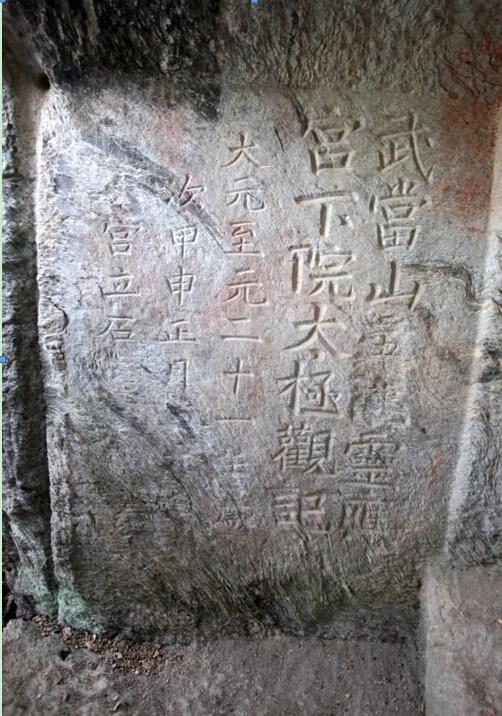 武當山靈應
宮下院太極觀記
大元至元二十一年歲
次甲申正月
宮立石